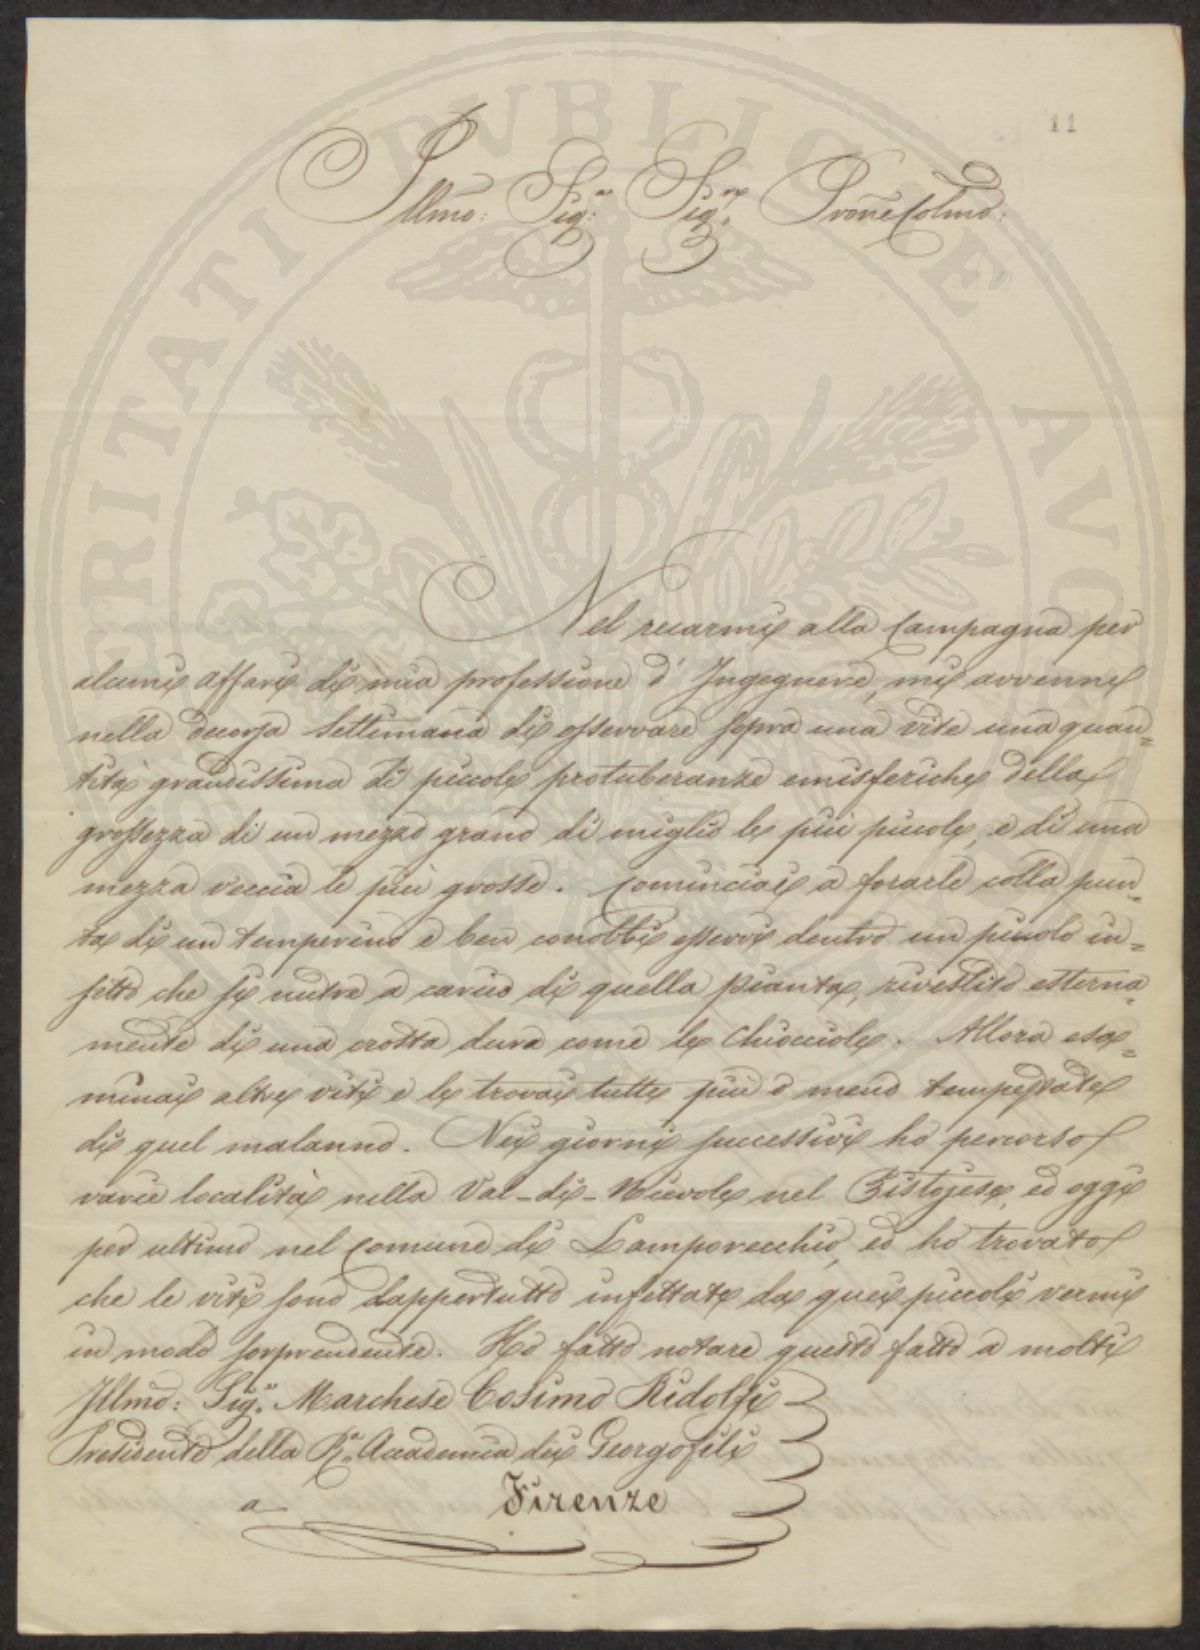 11
Illmo: Sig.r Sig.re Prone Colmo:
Nel recarmi alla Campagna per
alcuni affari di mia professione d' Ingegnere, mi avvenne
nella decorsa Settimana di osservare sopra una vite una quan=
tità grandissima di piccole protuberanze emisferiche della
grossezza di un mezzo grano di miglio le più piccole, e di una
mezza veccia le più grosse. Cominciai a forarle colla pun=
ta di un temperino e ben conobbi esservi dentro un piccolo in=
setto che si nutre a carico di quella pianta, rivestito esterna=
mente di una crosta dura come le Chiocciole. Allora esa=
minai altre viti e le trovai tutte più o meno tempestate
di quel malanno. Nei giorni successivi ho percorso
varie località nella Val-di-Nievole nel Pistojese, ed oggi
per ultimo nel Comune di Lamporecchio, ed ho trovato
che le viti sono dappertutto infettate da quei piccoli vermi
in modo sorprendente. Ho fatto notare questo fatto a molti
Illmo: Sig.r Marchese Cosimo Ridolfi
Presidente della R.a Accademia dei Georgofili
a Firenze
VERITATI PUBLICAE